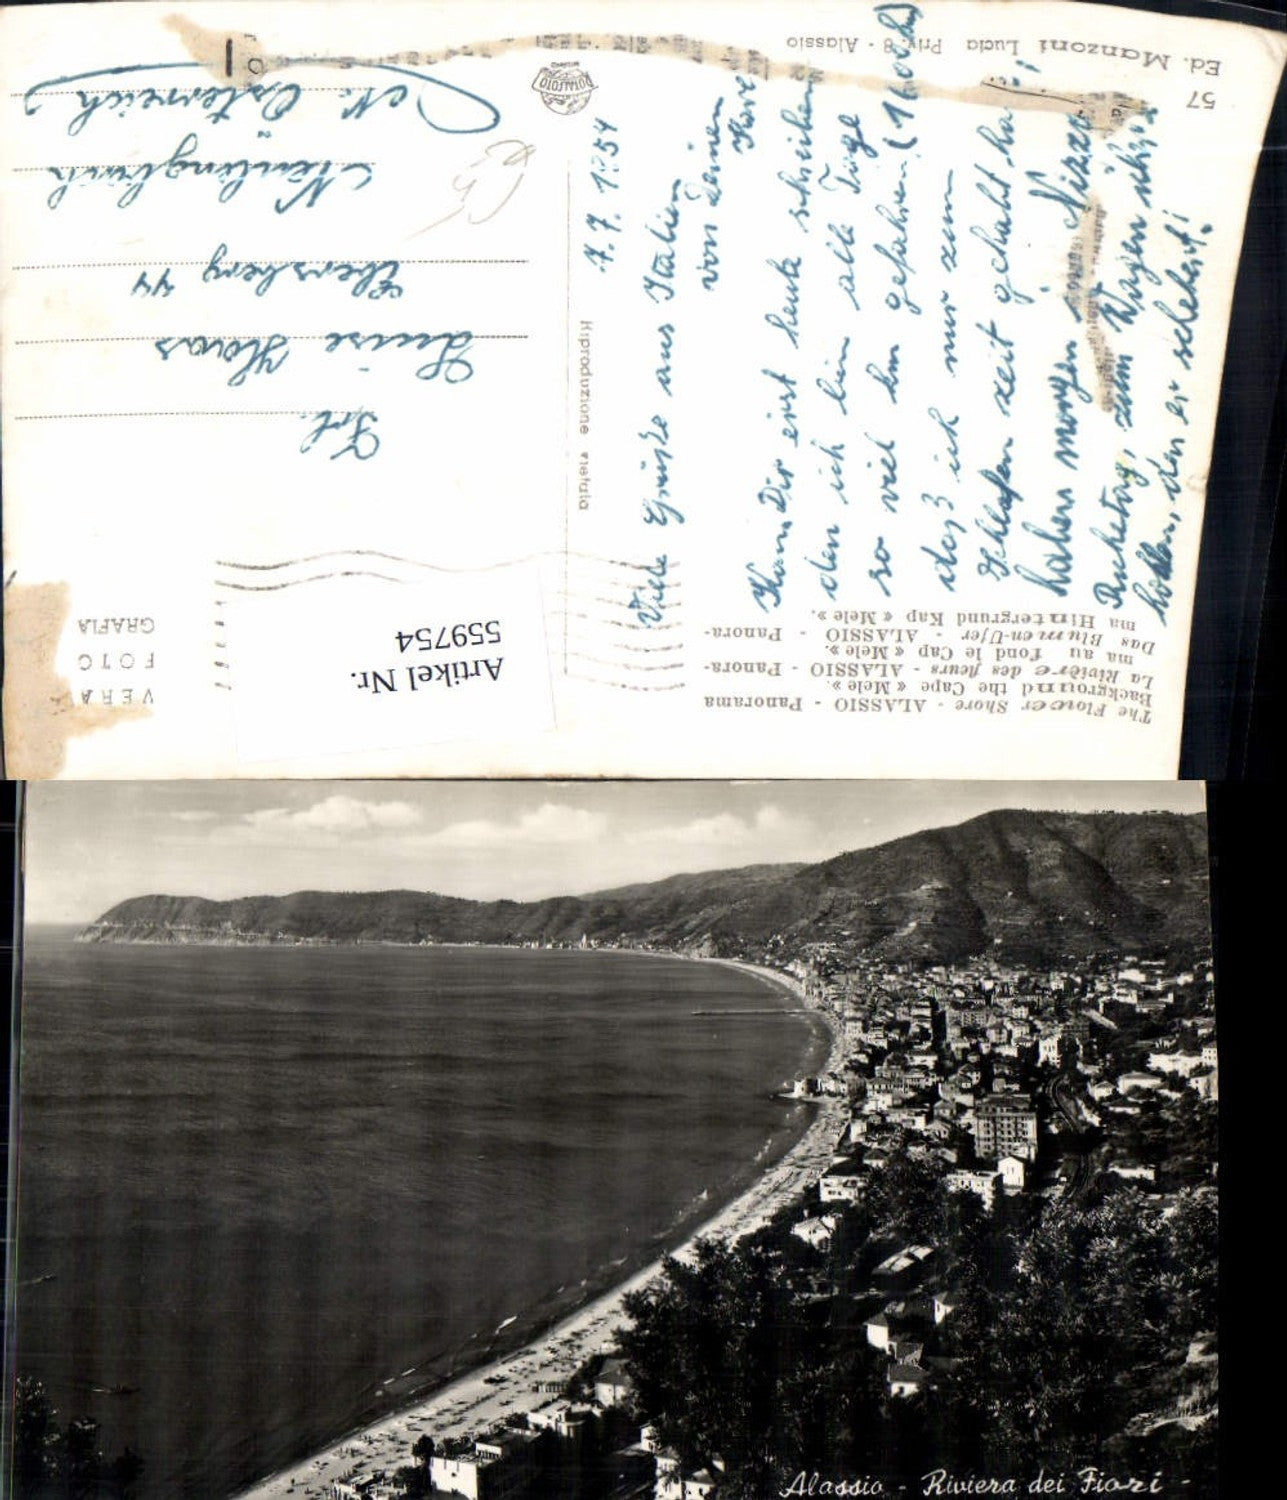 The Flower Shore - ALASSIO - Panorama
Background the Cape « Mele ».
La Rivière des fleurs - ALASSIO - Panora-
ma au fond le Cap « Mele ».
Das Blumen-Ufer - ALASSIO - Panora-
ma Hintergrund Kap « Mele ».
VERA
FOTO
GRAFIA
Artikel Nr.
559754
7.7.1954
Viele Grüße aus Italien
von Deinen
Kann Dir erst heute schreiben
den ich bin alle Tage
so viel km gefahren
das3 ich nur zum
Schlafen zeit gehabt ha
haben morgen Nizza
Rasttag, zum
den er
Frl.
Luise Haas
Ebersberg 44
Neulengbach
N. Österreich
Riproduzione vietata
ROTALFOTO
57
Ed. Manzoni Lucia Priv. 8 - Alassio
Alassio - Riviera dei Fiori -